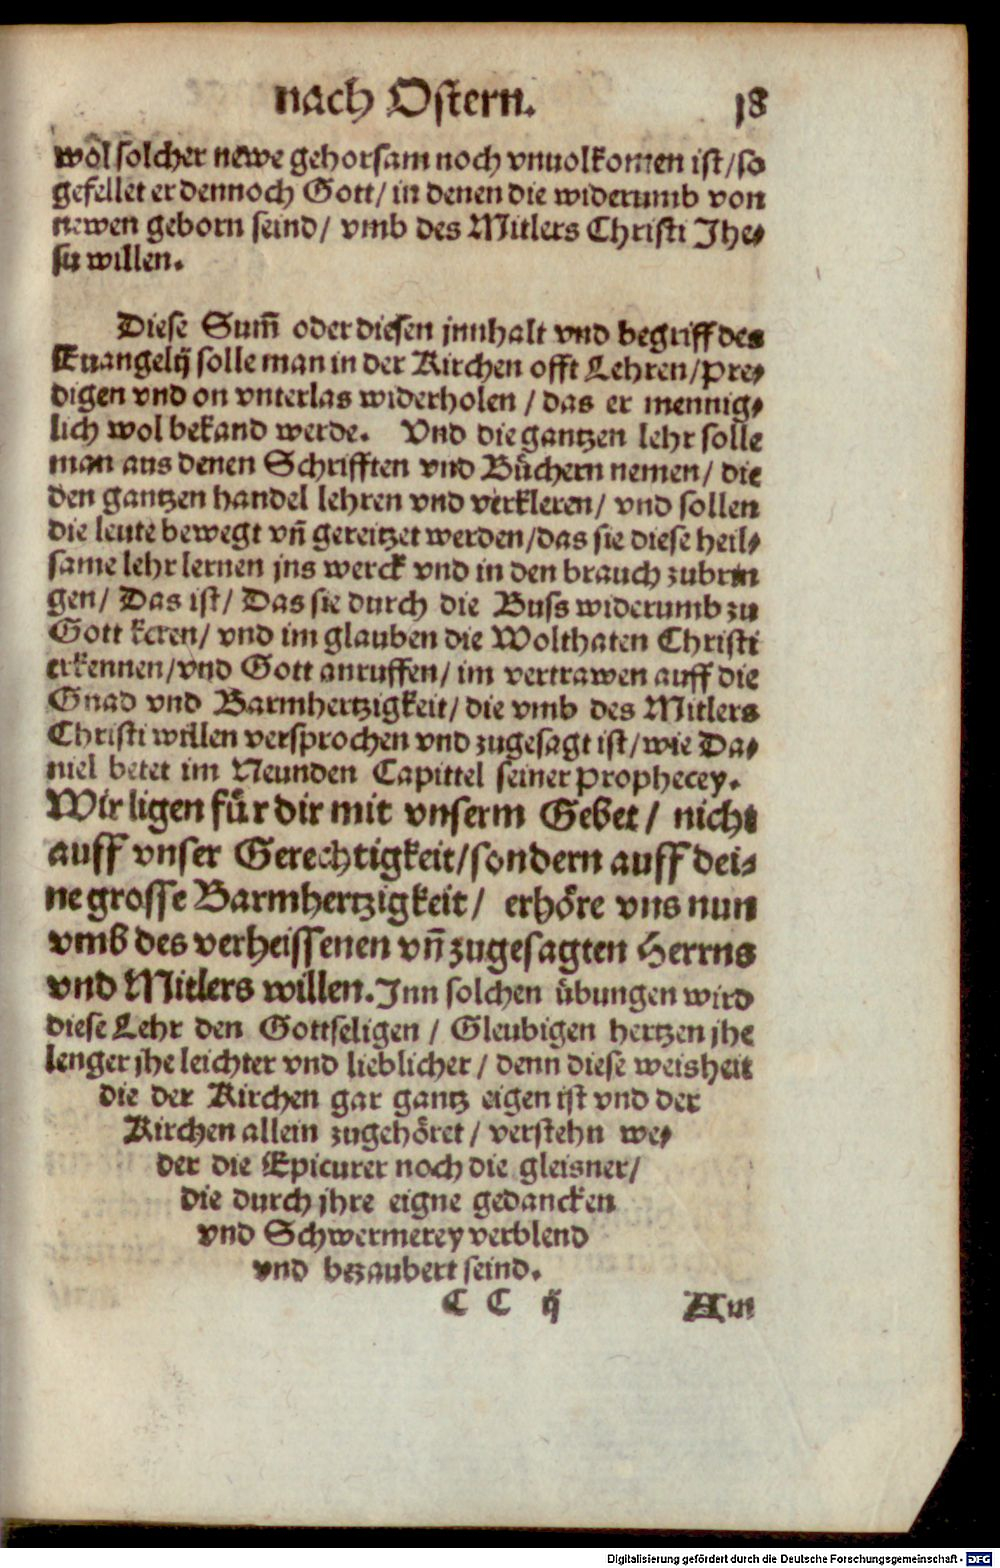 nach Ostern. 18
wol solcher newe gehorsam noch vnuolkomen ist/ so
gefellet er dennoch Gott/ in denen die widerumb von
newen geborn seind/ vmb des Mitlers Christi Jhe⸗
su willen.
Diese Sum̃ oder diesen jnnhalt vnd begriff des
Euangelij solle man in der Kirchen offt Lehren/ pre⸗
digen vnd on vnterlas widerholen / das er mennig⸗
lich wol bekand werde. Vnd die gantzen lehr solle
man aus denen Schrifften vnd Büchern nemen/ die
den gantzen handel lehren vnd verkleren/ vnd sollen
die leute bewegt vñ gereitzet werden/ das sie diese heil⸗
same lehr lernen jns werck vnd in den brauch zubrin
gen/ Das ist/ Das sie durch die Buss widerumb zu
Gott keren/ vnd im glauben die Wolthaten Christi
erkennen/ vnd Gott anruffen/ im vertrawen auff die
Gnad vnd Barmhertzigkeit/ die vmb des Mitlers
Christi willen versprochen vnd zugesagt ist/ wie Da⸗
niel betet im Neunden Capittel seiner prophecey.
Wir ligen für dir mit vnserm Gebet/ nicht
auff vnser Gerechtigkeit/ sondern auff dei⸗
ne grosse Barmhertzigkeit/ erhöre vns nun
vmb des verheissenen vñ zugesagten Herrns
vnd Mitlers willen. Jnn solchen übungen wird
diese Lehr den Gottseligen / Gleubigen hertzen jhe
lenger jhe leichter vnd lieblicher / denn diese weisheit
die der Kirchen gar gantz eigen ist vnd der
Kirchen allein zugehöret / verstehn we⸗
der die Epicurer noch die gleisner/
die durch jhre eigne gedancken
vnd Schwermerey verblend
vnd bezaubert seind.
C C ij Am
Digitalisierung gefördert durch die Deutsche Forschungsgemeinschaft - DFG